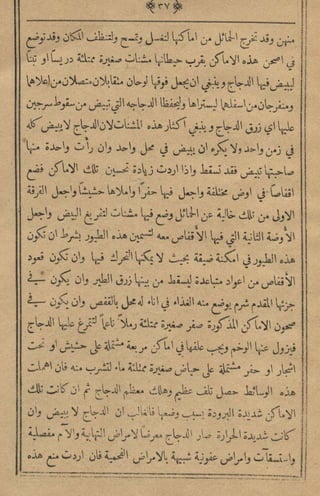 ﴿٣٧﴾
منهن وقد تخرج الحمائل من اماكنها لتغسل وتمسح ولتنظف المكان وقد توضع
في اصحن هذه الاماكن بقرب حيطانها مشنات صغيرة ممتلئة دريسا او تبنا
ليبيض فيها الدجاج وينبغي ان يجعل فوقها لوحان متقابلان متصلان من اعلاهما
ومنفرجان من اسفلهما ليستراها وليحفظا الدجاجه التي تبيض من سقوط سرجين
عليها اي زرق الدجاج وينبغي اكثار هذه المشنات لان الدجاج لا يبيض كله
في زمن واحد ولا يكره ان يبيض في محل واحد وان رأت واحدة منها
صاحبتها تبيض فقد تسقط واذا اردت زيادة تحسين تلك الاماكن فضع
اقفاصا في اوض مختلفة واجعل فيها حفرا واملاها حشيشا واجعل الفرقة
الاولى من تلك خالية عن الحمائل وضع فيها مشنات لتفريغ البيض واجعل
الأوضة الثانية التي فيها الأقفاص معدة لتسمين هذه الطيور بشرط ان تكون
هذه الطيور في امكنة ضيقة بحيث لا يمكنها التحرك فيها وان تكون قعود
الأقفاص من اعواد متباعدة ليسقط من بينها زرق الطير وان يكون في
جزئها المقدم شرم يوضع منه الغذاء في اناء له محل بالقفص وان يكون في
صحون الاماكن المذكورة صفر صغيرة ممتلئة رملا ناعما لتتمرغ عليها الدجاج
فيزول عنها الوخم ويجب علفها في اماكن مربعة مشتملة على حشيش او تحت
اشجار او حفر مشتملة على حياض صغيرة ممتلئة ماء لتشرب منه فان اهملت
هذه الوسائط حصل تلف عظيم وهلك معظم الدجاج ثم ان كانت تلك
الاماكن شديدة البرودة بسبب وضعها فالغالب ان الدجاج لا يبيض وان
كانت شديدة الحرارة صار الدجاج معرضا لامراض التهابية وآلام مفصلية
واستسقات وامراض عفونية شبيهة بالامراض الفحمية فان اردت منع هذه